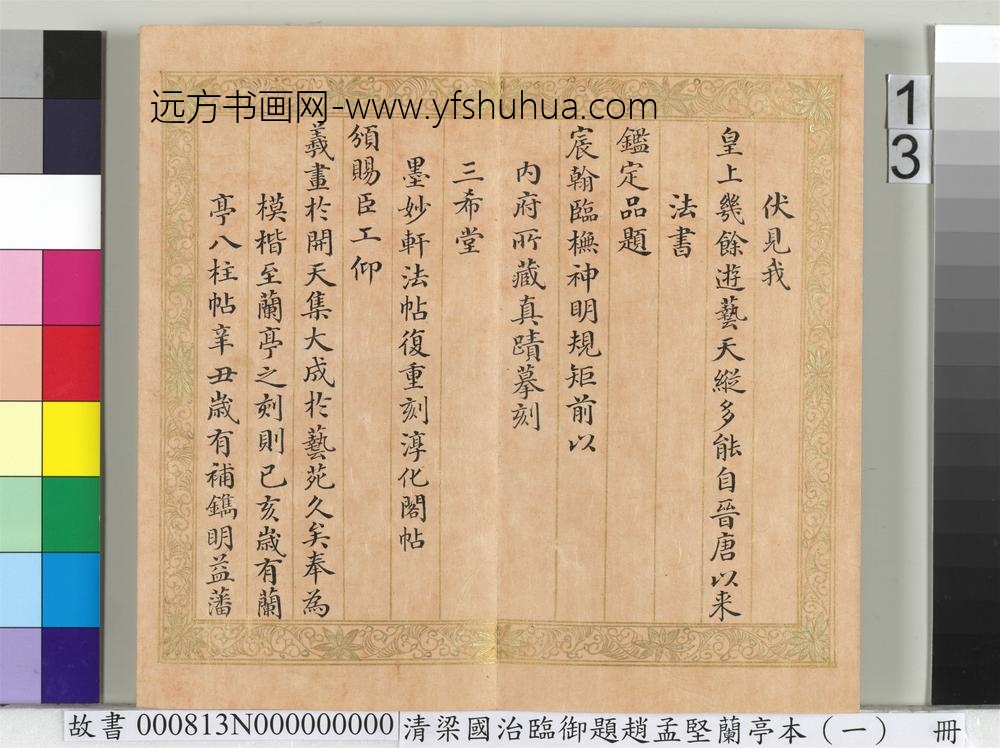 远方书画网-www.yfshuhua.com
伏見我
皇上幾餘遊藝天縱多能自晉唐以来
法書
鑑定品題
宸翰臨橅神明規矩前以
内府所藏真蹟摹刻
三希堂
墨妙軒法帖復重刻淳化閣帖
頒賜臣工仰
羲畫於開天集大成於藝苑久矣奉為
模楷至蘭亭之刻則已亥歲有蘭
亭八柱帖辛丑歲有補鐫明益藩
13
故書 000813N000000000 清梁國治臨御題趙孟堅蘭亭本（一） 冊